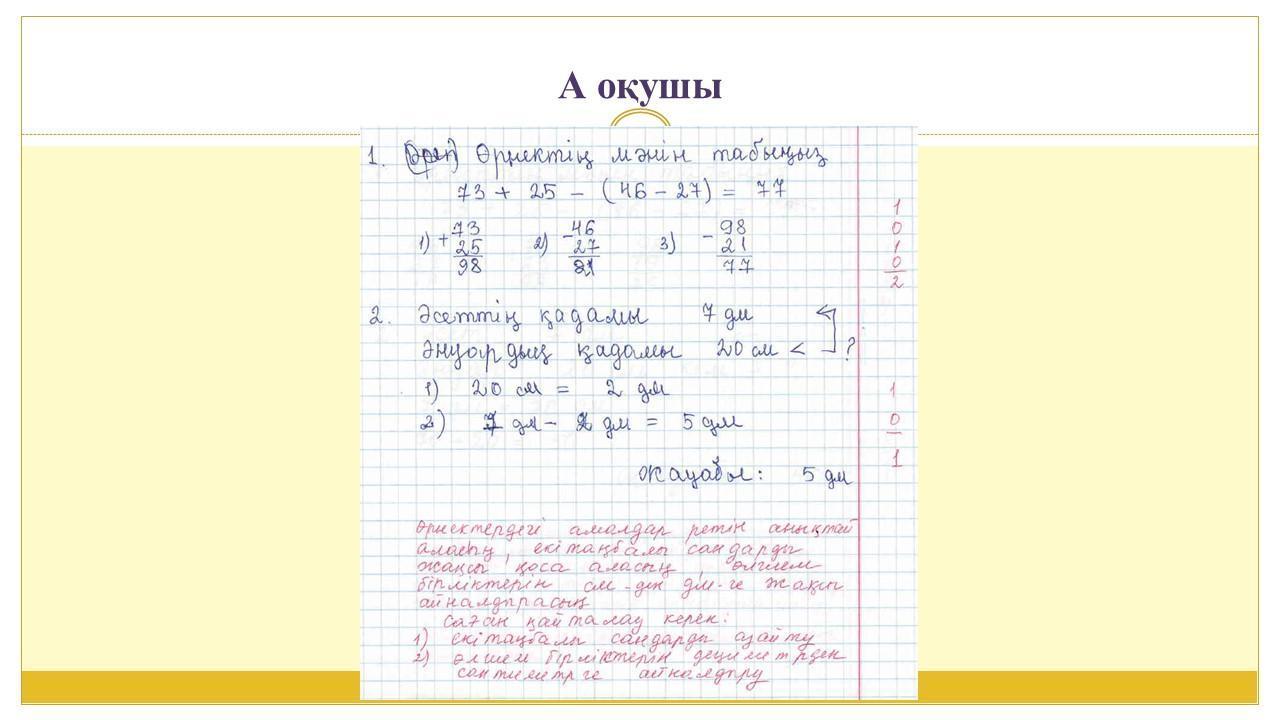 А оқушы
1. Өрнектің мәнін табыңыз
73 + 25 - (46 - 27) = 77
1) + 73 2) - 46 3) - 98
25 27 21
98 21 77
1
0
1
0
2
2. Әсеттің қадамы 7 дм <
Әнуардың қадамы 20 см < ?
1) 20 см = 2 дм
2) 7 дм - 2 дм = 5 дм
1
0
1
Жауабы: 5 дм
Өрнектердегі амалдар ретін анықтай
аласың, екі таңбалы сандарды
жақсы қоса аласың, өлшем
бірліктерін см-ден дм-ге жақсы
айналдырасың
Саған қайталау керек:
1) екі таңбалы сандарды азайту
2) өлшем бірліктерін дециметрден
сантиметрге айналдыру